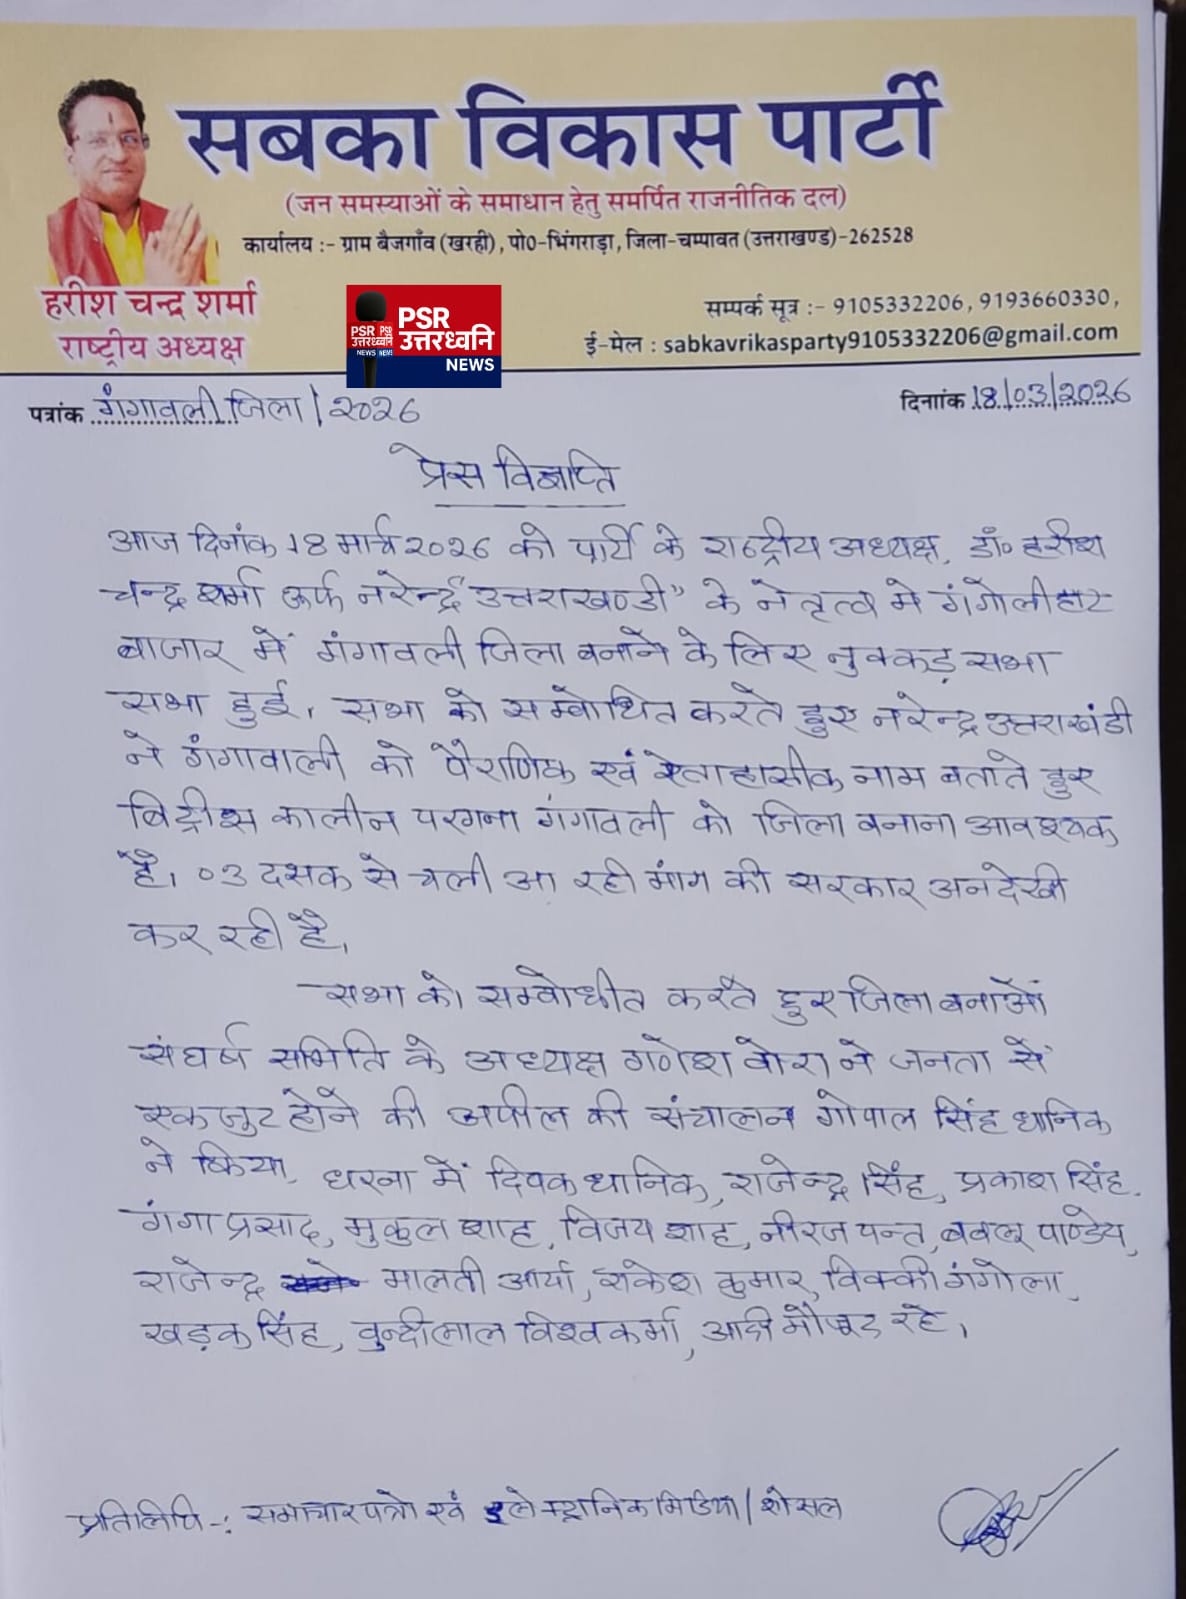 सबका विकास पार्टी
(जन समस्याओं के समाधान हेतु समर्पित राजनीतिक दल)
कार्यालय :- ग्राम बैजगाँव (खरही), पो0-भिंगराड़ा, जिला-चम्पावत (उत्तराखण्ड)-262528
हरीश चन्द्र शर्मा
राष्ट्रीय अध्यक्ष
PSR उत्तरध्वनि NEWS
PSR
उत्तरध्वनि
NEWS
सम्पर्क सूत्र :- 9105332206, 9193660330,
ई-मेल : sabkavrikasparty9105332206@gmail.com
पत्रांक गंगावली जिला/2026
दिनांक 18/03/2026
प्रेस विज्ञप्ति
आज दिनांक 18 मार्च 2026 को पार्टी के राष्ट्रीय अध्यक्ष डॉ० हरीश
चन्द्र शर्मा ऊर्फ नरेन्द्र "उत्तराखण्डी" के नेतृत्व मे गंगोलीहाट
बाजार में गंगावली जिला बनाने के लिए नुक्कड़ सभा
सभा हुई, सभा को सम्बोधित करते हुए नरेन्द्र उत्तराखंडी
ने गंगावाली को पैराणिक एवं नाम बताते हुए
कालीन परगना गंगावली को जिला बनाना आवश्यक
है। 03 दसक से चली आ रही मांग की सरकार अनदेखी
कर रही है,
सभा को सम्बोधीत करते हुए जिला बनाओं
संघर्ष समिति के अध्यक्ष गणेश बोरा ने जनता से
एकजुट होने की अपील की संचालन गोपाल सिंह धानिक
ने किया, धरना में दिपक धानिक, राजेन्द्र सिंह, प्रकाश सिंह,
गंगा प्रसाद, मुकुल शाह, विजय शाह, नीरज पन्त, बबलू पाण्डेय,
राजेन्द्र मालती आर्या, राकेश कुमार, विक्की गंगोला,
खड़क सिंह, वुन्दीलाल विश्वकर्मा, आदी मौजूद रहे,
प्रतिलिपि -: समाचार पत्रो एवं इलेक्ट्रानिक मिडिया/शोसल